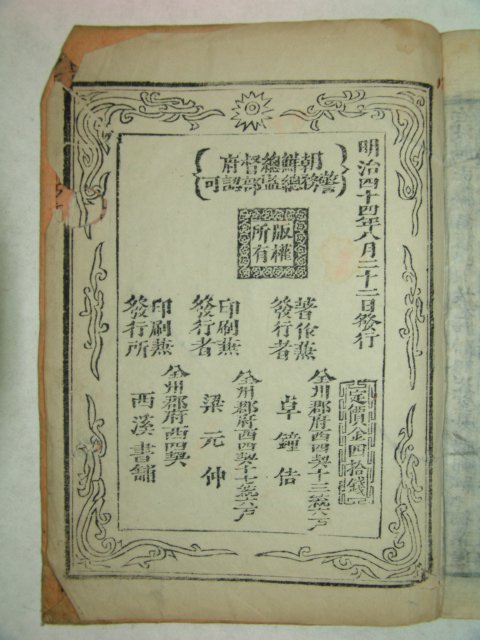 明治四十四年八月二十二日發行
朝鮮總督府
警務總監部認可
版權
所有
定價金四拾錢
著作兼
發行者
全州郡府西四契十三統六戶
卓鐘佶
印刷兼
發行者
全州郡府西四契十七統六戶
梁元仲
印刷兼
發行所
全州郡府西四契
西溪書舖